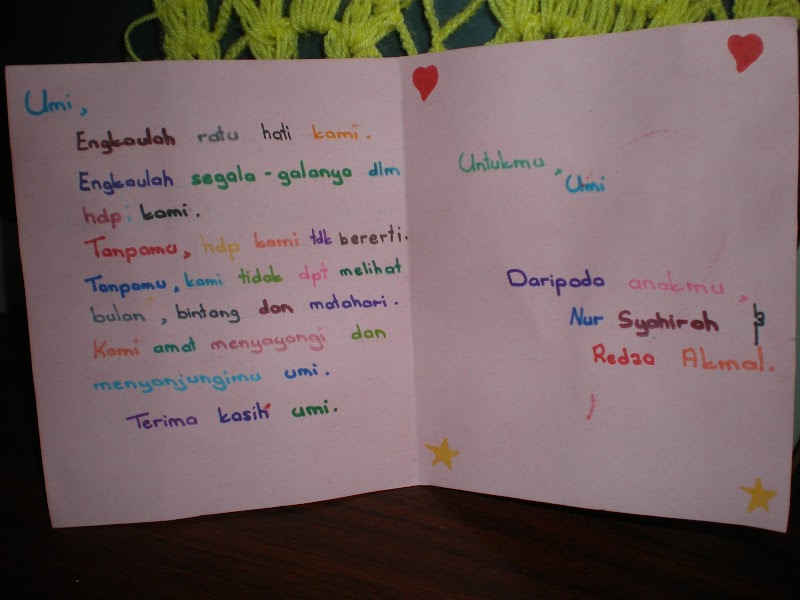 Umi,
Engkaulah ratu hati kami.
Engkaulah segala-galanya dlm
hdp kami.
Tanpamu, hdp kami tdk bererti.
Tanpamu, kami tidak dpt melihat
bulan, bintang dan matahari.
Kami amat menyayangi dan
menyanjungimu umi.
Terima kasih umi.
Untukmu,
Umi
Daripada anakmu,
Nur Syahirah &
Redza Akmal.